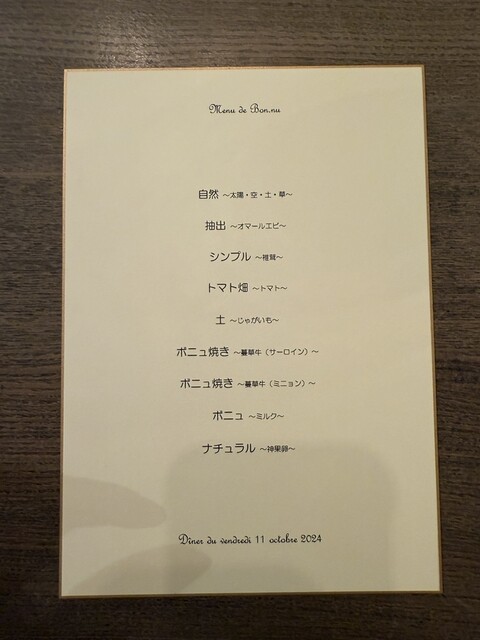 Menu de Bon.nu
自然 ～太陽・空・土・草～
抽出 ～オマールエビ～
シンプル ～椎茸～
トマト畑 ～トマト～
土 ～じゃがいも～
ボニュ焼き ～蔓草牛（サーロイン）～
ボニュ焼き ～蔓草牛（ミニョン）～
ボニュ ～ミルク～
ナチュラル ～神果卵～
Dîner du vendredi 11 octobre 2024